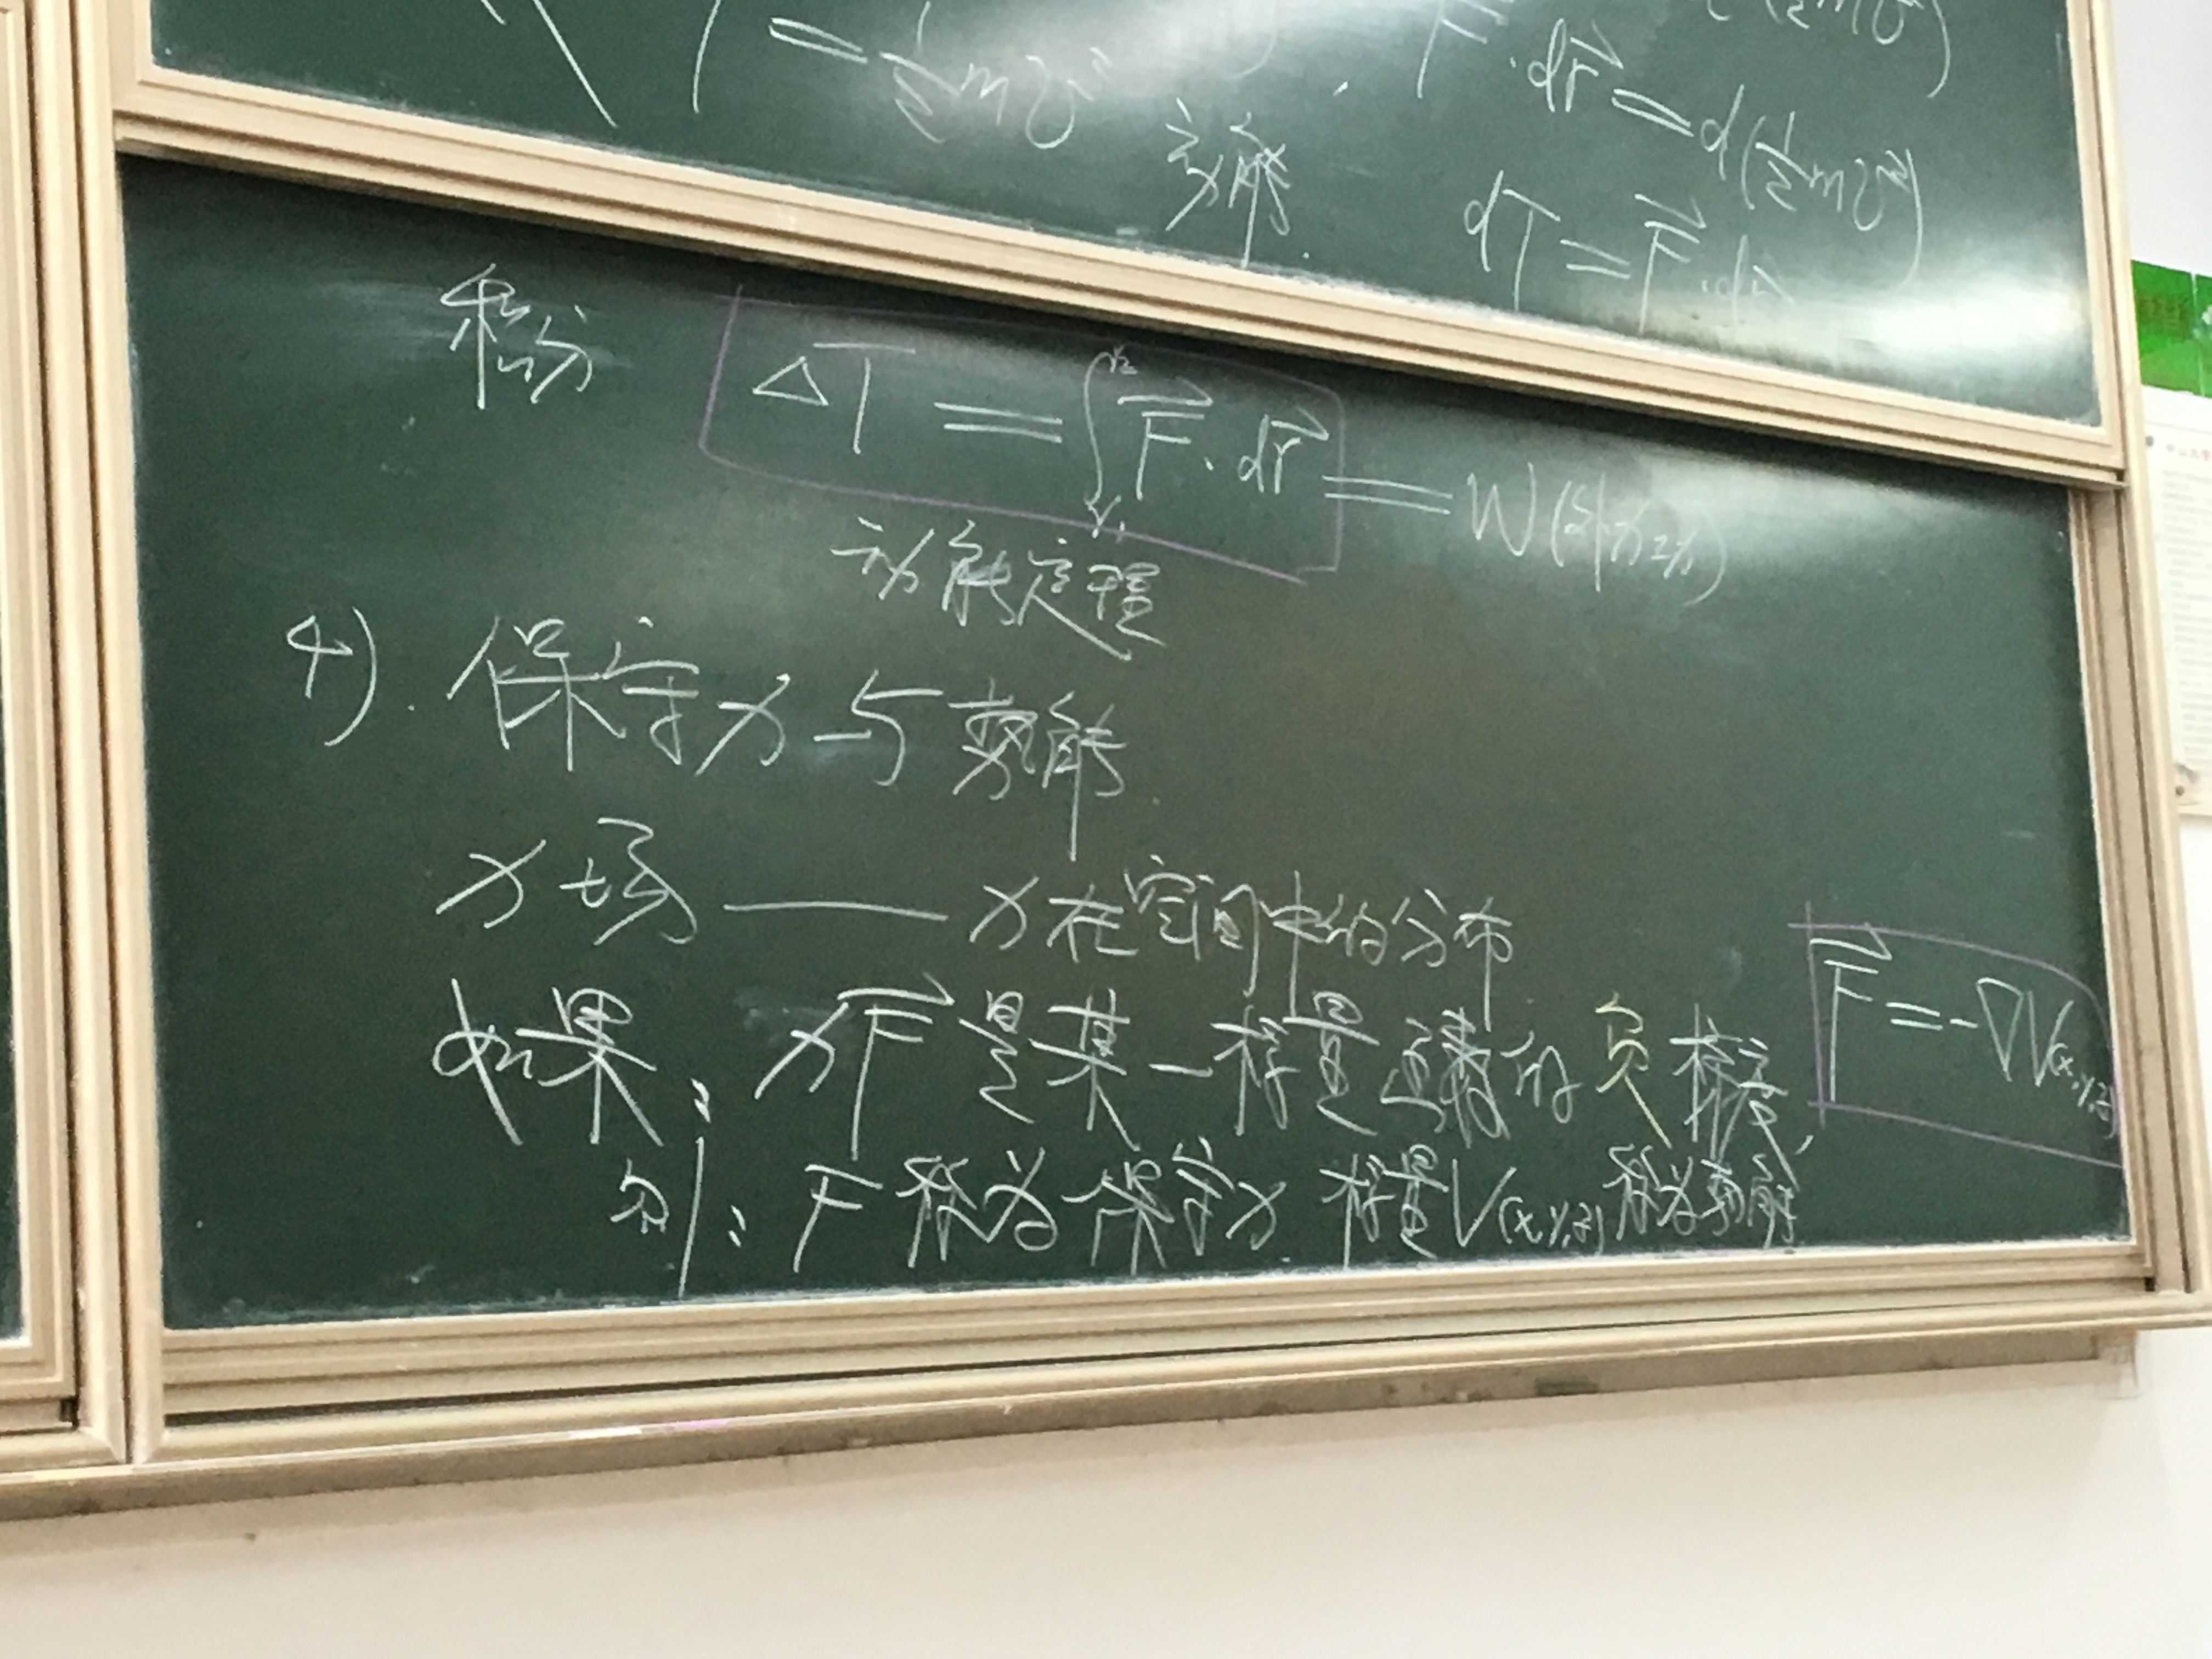 T = ½mv²
动能.
F⃗ · dr⃗ = d(½mv²)
dT = F⃗ · dr⃗
积分 ΔT = ∫_{r₁}^{r₂} F⃗ · dr⃗ = W(外力之功)
动能定理
4). 保守力与势能.
力场 —— 力在空间中的分布
如果: 力F⃗是某一标量函数的负梯度,
F⃗ = -∇V(x,y,z)
则: F称为保守力 标量V(x,y,z)称为势能